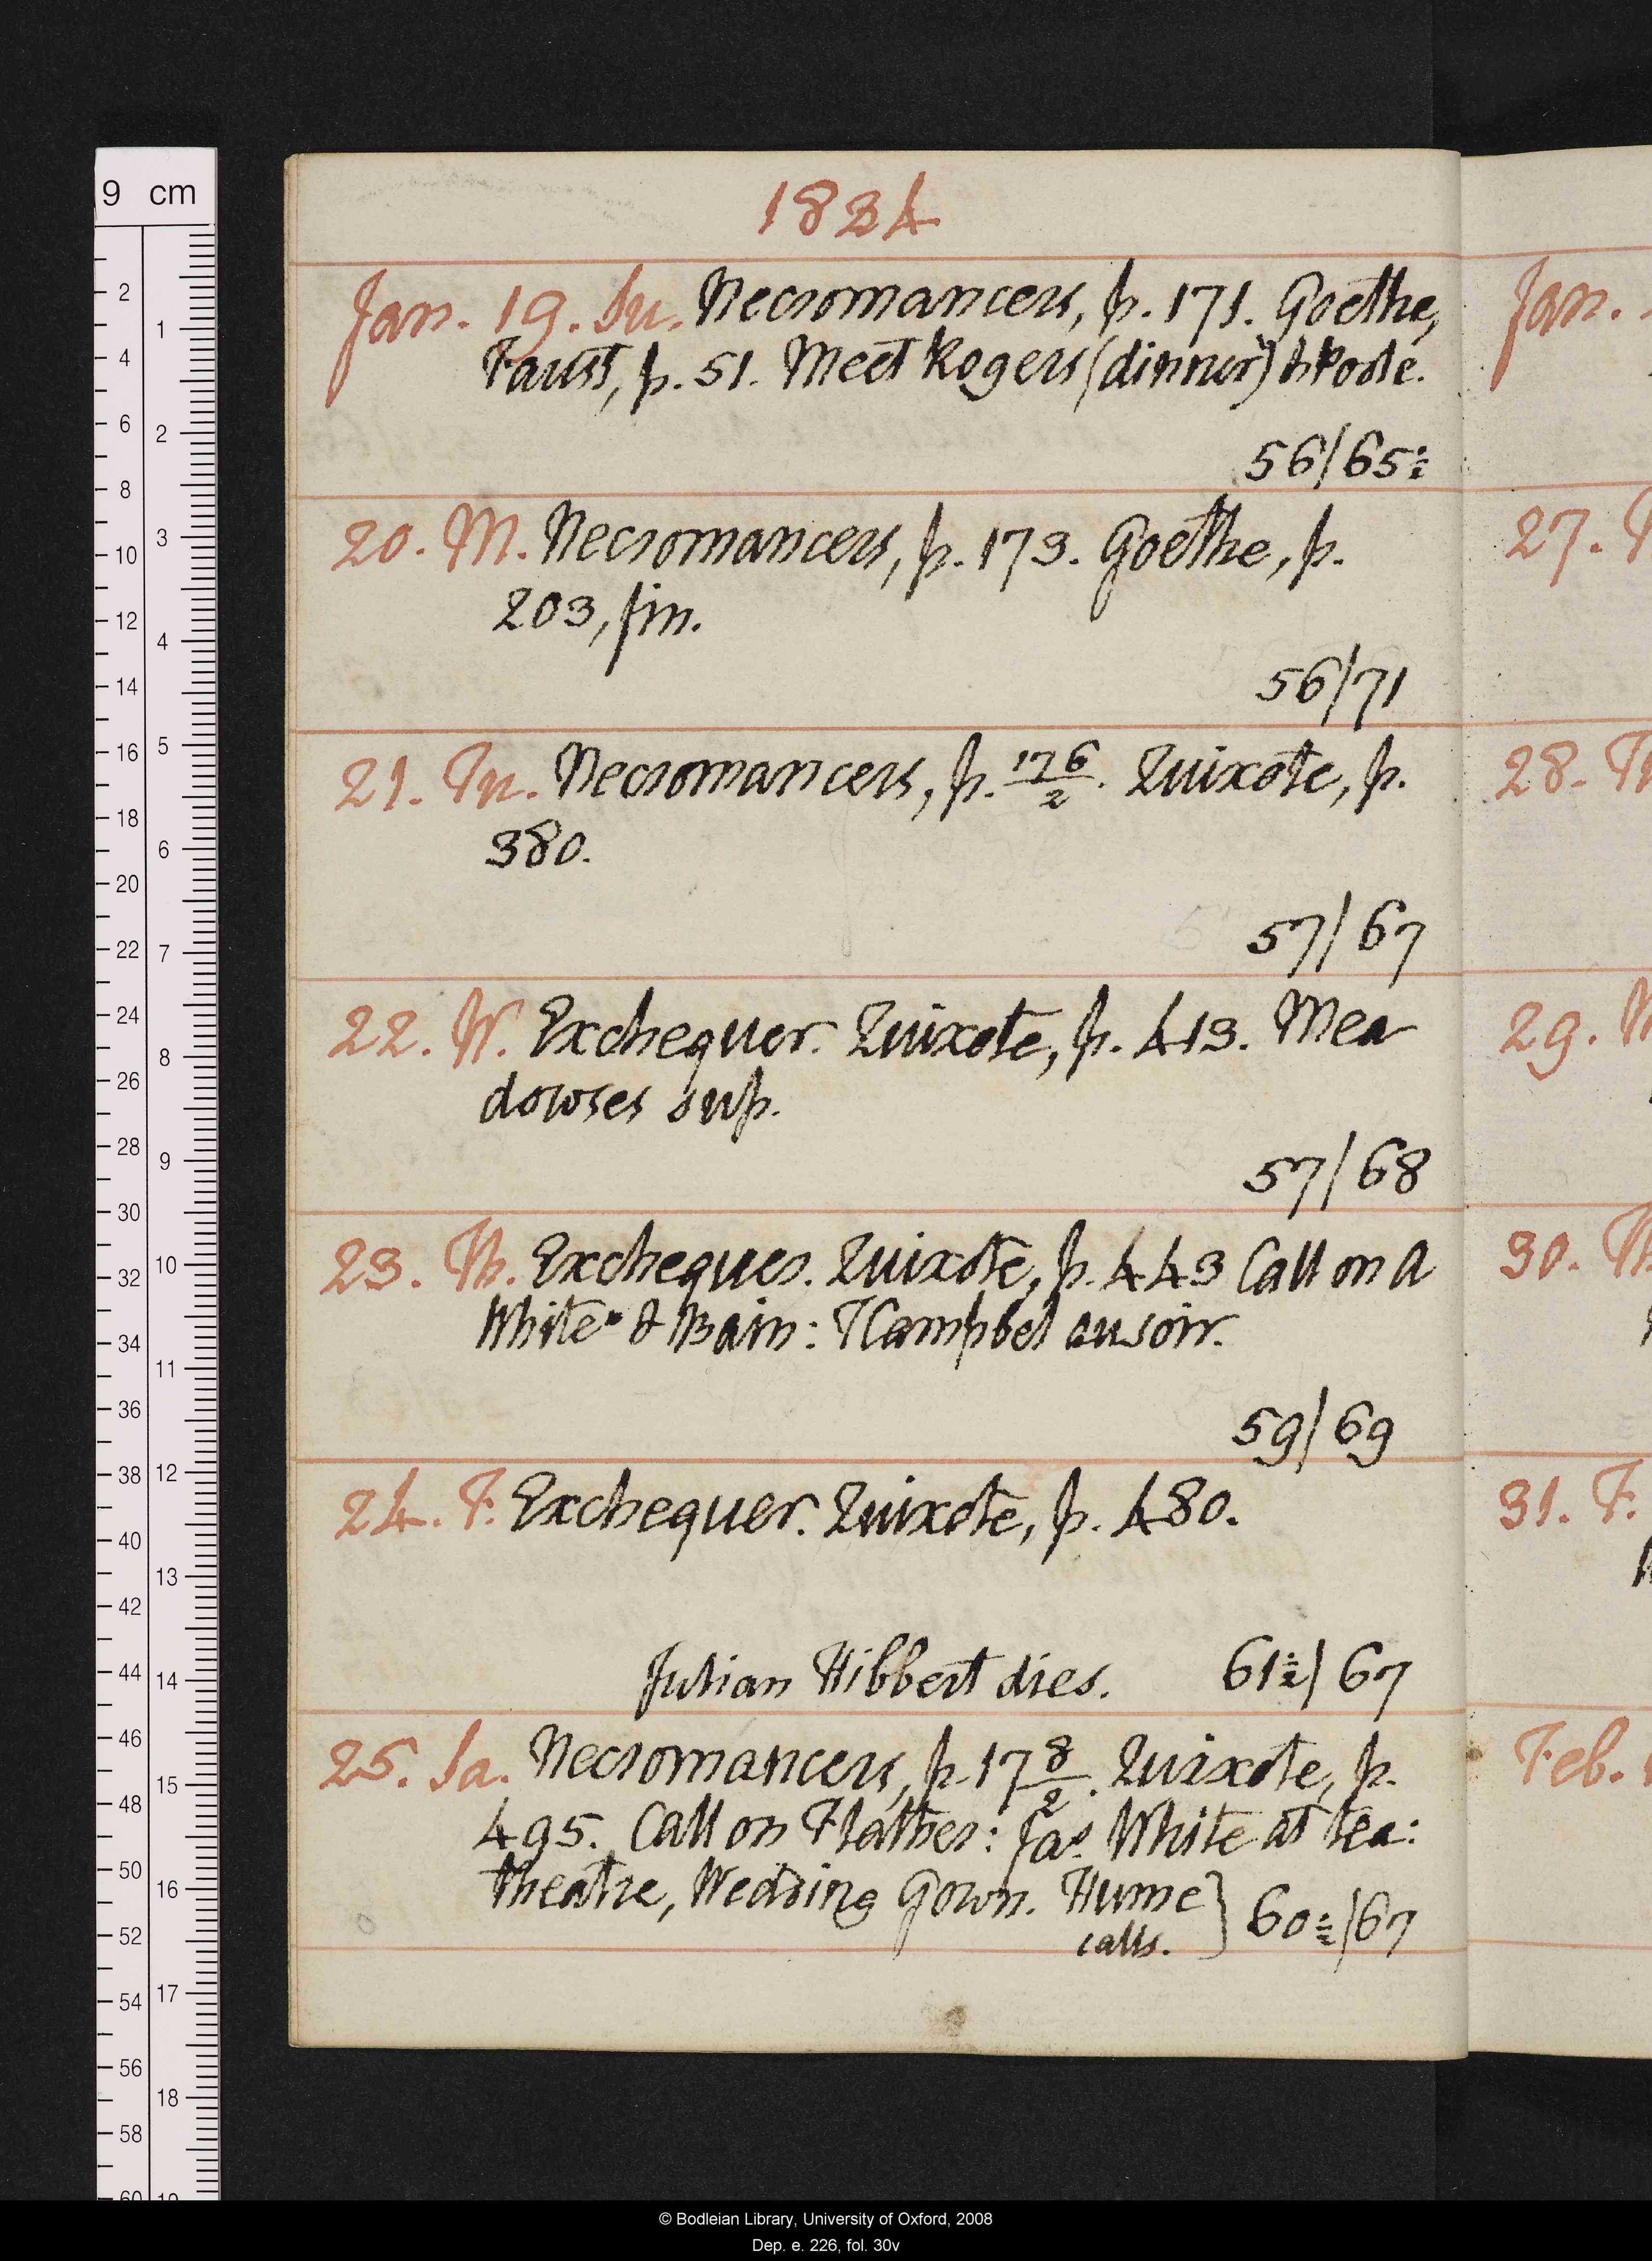 1834
Jan. 19. Su. Necromancers, p. 171. Goethe,
Faust, p. 51. Meet Rogers (dinner) h Poole.
56/65½
20. M. Necromancers, p. 173. Goethe, p.
203, fin.
56/71
21. Tu. Necromancers, p. 176/2. Quixote, p.
380.
57/67
22. W. Exchequer. Quixote, p. 413. Mea
dowses sup.
57/68
23. Th. Exchequer. Quixote, p. 443 Call on A
White & Bain: T Campbel au soir.
59/69
24. F. Exchequer. Quixote, p. 480.
Julian Hibbert dies. 61½/67
25. Sa. Necromancers, p. 178/2. Quixote, p.
495. Call on Flather: Jas White at tea:
theatre, Wedding Gown. Hume
calls. } 60½/67
Jan.
27. T
28. Tu
29. W
30. Th
31. F.
Feb.
9 cm
2
4
6
8
10
12
14
16
18
20
22
24
26
28
30
32
34
36
38
40
42
44
46
48
50
52
54
56
58
60
1
2
3
4
5
6
7
8
9
10
11
12
13
14
15
16
17
18
19
© Bodleian Library, University of Oxford, 2008
Dep. e. 226, fol. 30v